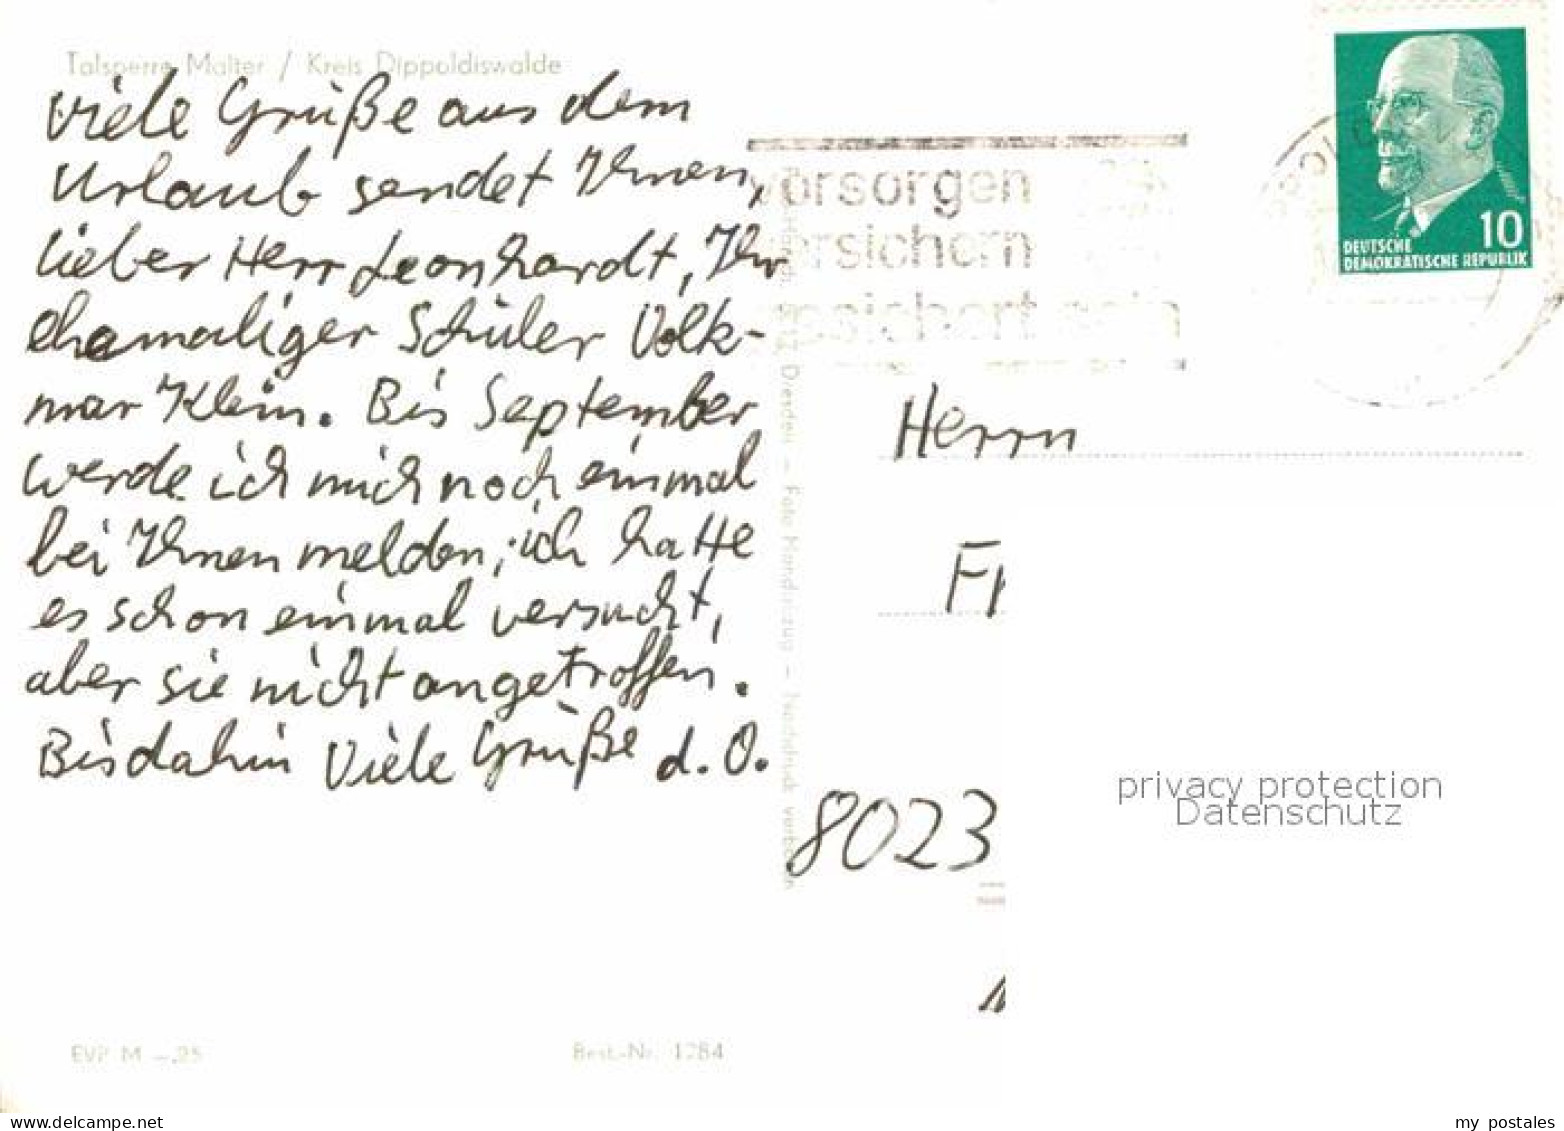 Talsperre Malter / Kreis Dippoldiswalde
Viele Grüße aus dem
Urlaub sendet Ihnen,
lieber Herr Leonhardt, Ihr
ehemaliger Schüler Volk-
mar Klein. Bis September
werde ich mich noch einmal
bei Ihnen melden; ich hatte
es schon einmal versucht,
aber sie nicht angetroffen.
Bis dahin Viele Grüße d. O.
EVP M –,25
Best.-Nr. 1284
Dresden – Foto Handzeug – Nachdruck verboten
vorsorgen
versichern
gesichert sein
10
DEUTSCHE
DEMOKRATISCHE REPUBLIK
Herrn
8023
privacy protection
Datenschutz
my postales